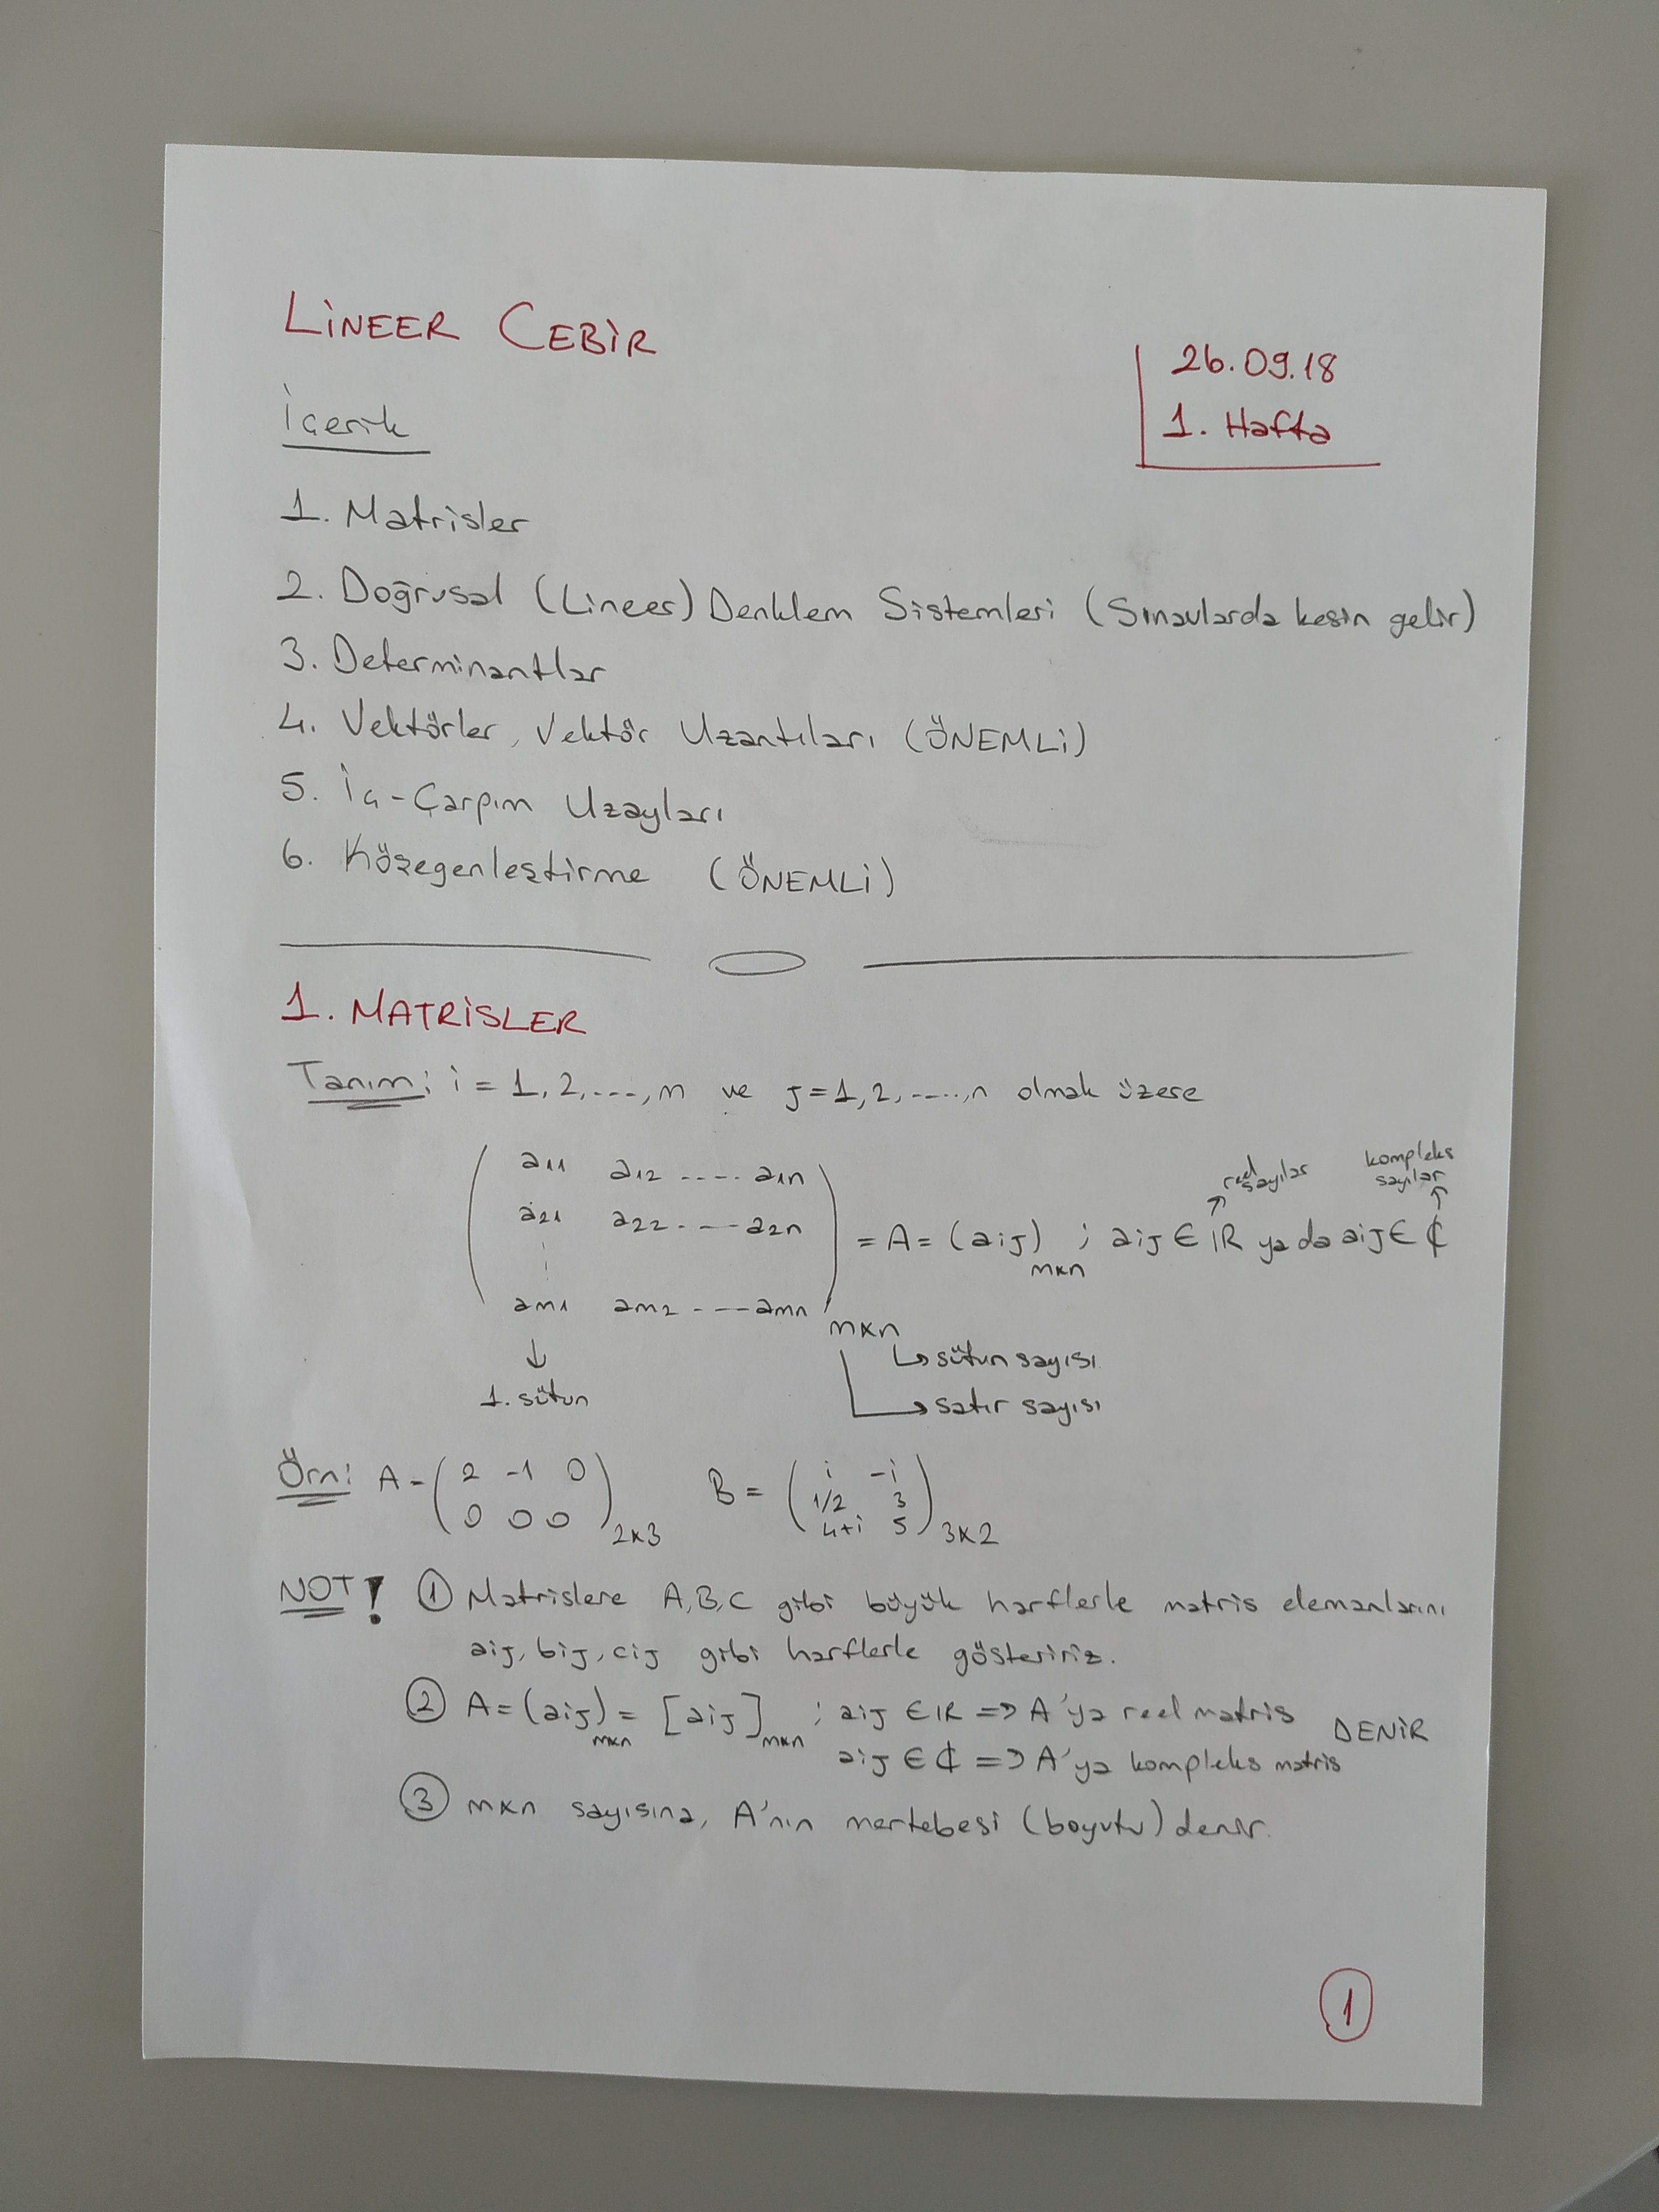 LİNEER CEBİR
26.09.18
1. Hafta
İçerik
1. Matrisler
2. Doğrusal (Lineer) Denklem Sistemleri (Sınavlarda kesin gelir)
3. Determinantlar
4. Vektörler, Vektör Uzantıları (ÖNEMLİ)
5. İç-Çarpım Uzayları
6. Közegenleştirme (ÖNEMLİ)
1. MATRİSLER
Tanım: i = 1,2,...,m ve j=1,2,....,n olmak üzere
reel sayılar
kompleks sayılar
a11 a12 ..... a1n
a21 a22 ..... a2n
= A = (aij)mxn ; aij ∈ IR ya da aij ∈ ₵
am1 am2 ..... amn
mxn
↳ sütun sayısı
↓
1. sütun
→ satır sayısı
Örn: A = (2 -1 0
0 0 0)2x3
B = (i -i
1/2 3
4+i 5)3x2
NOT! ① Matrislere A,B,C gibi büyük harflerle matris elemanlarını
aij, bij, cij gibi harflerle gösteririz.
② A = (aij)mxn = [aij]mxn ; aij ∈ IR => A'ya reel matris DENİR
aij ∈ ₵ => A'ya kompleks matris
③ mxn sayısına, A'nın mertebesi (boyutu) denir.
1